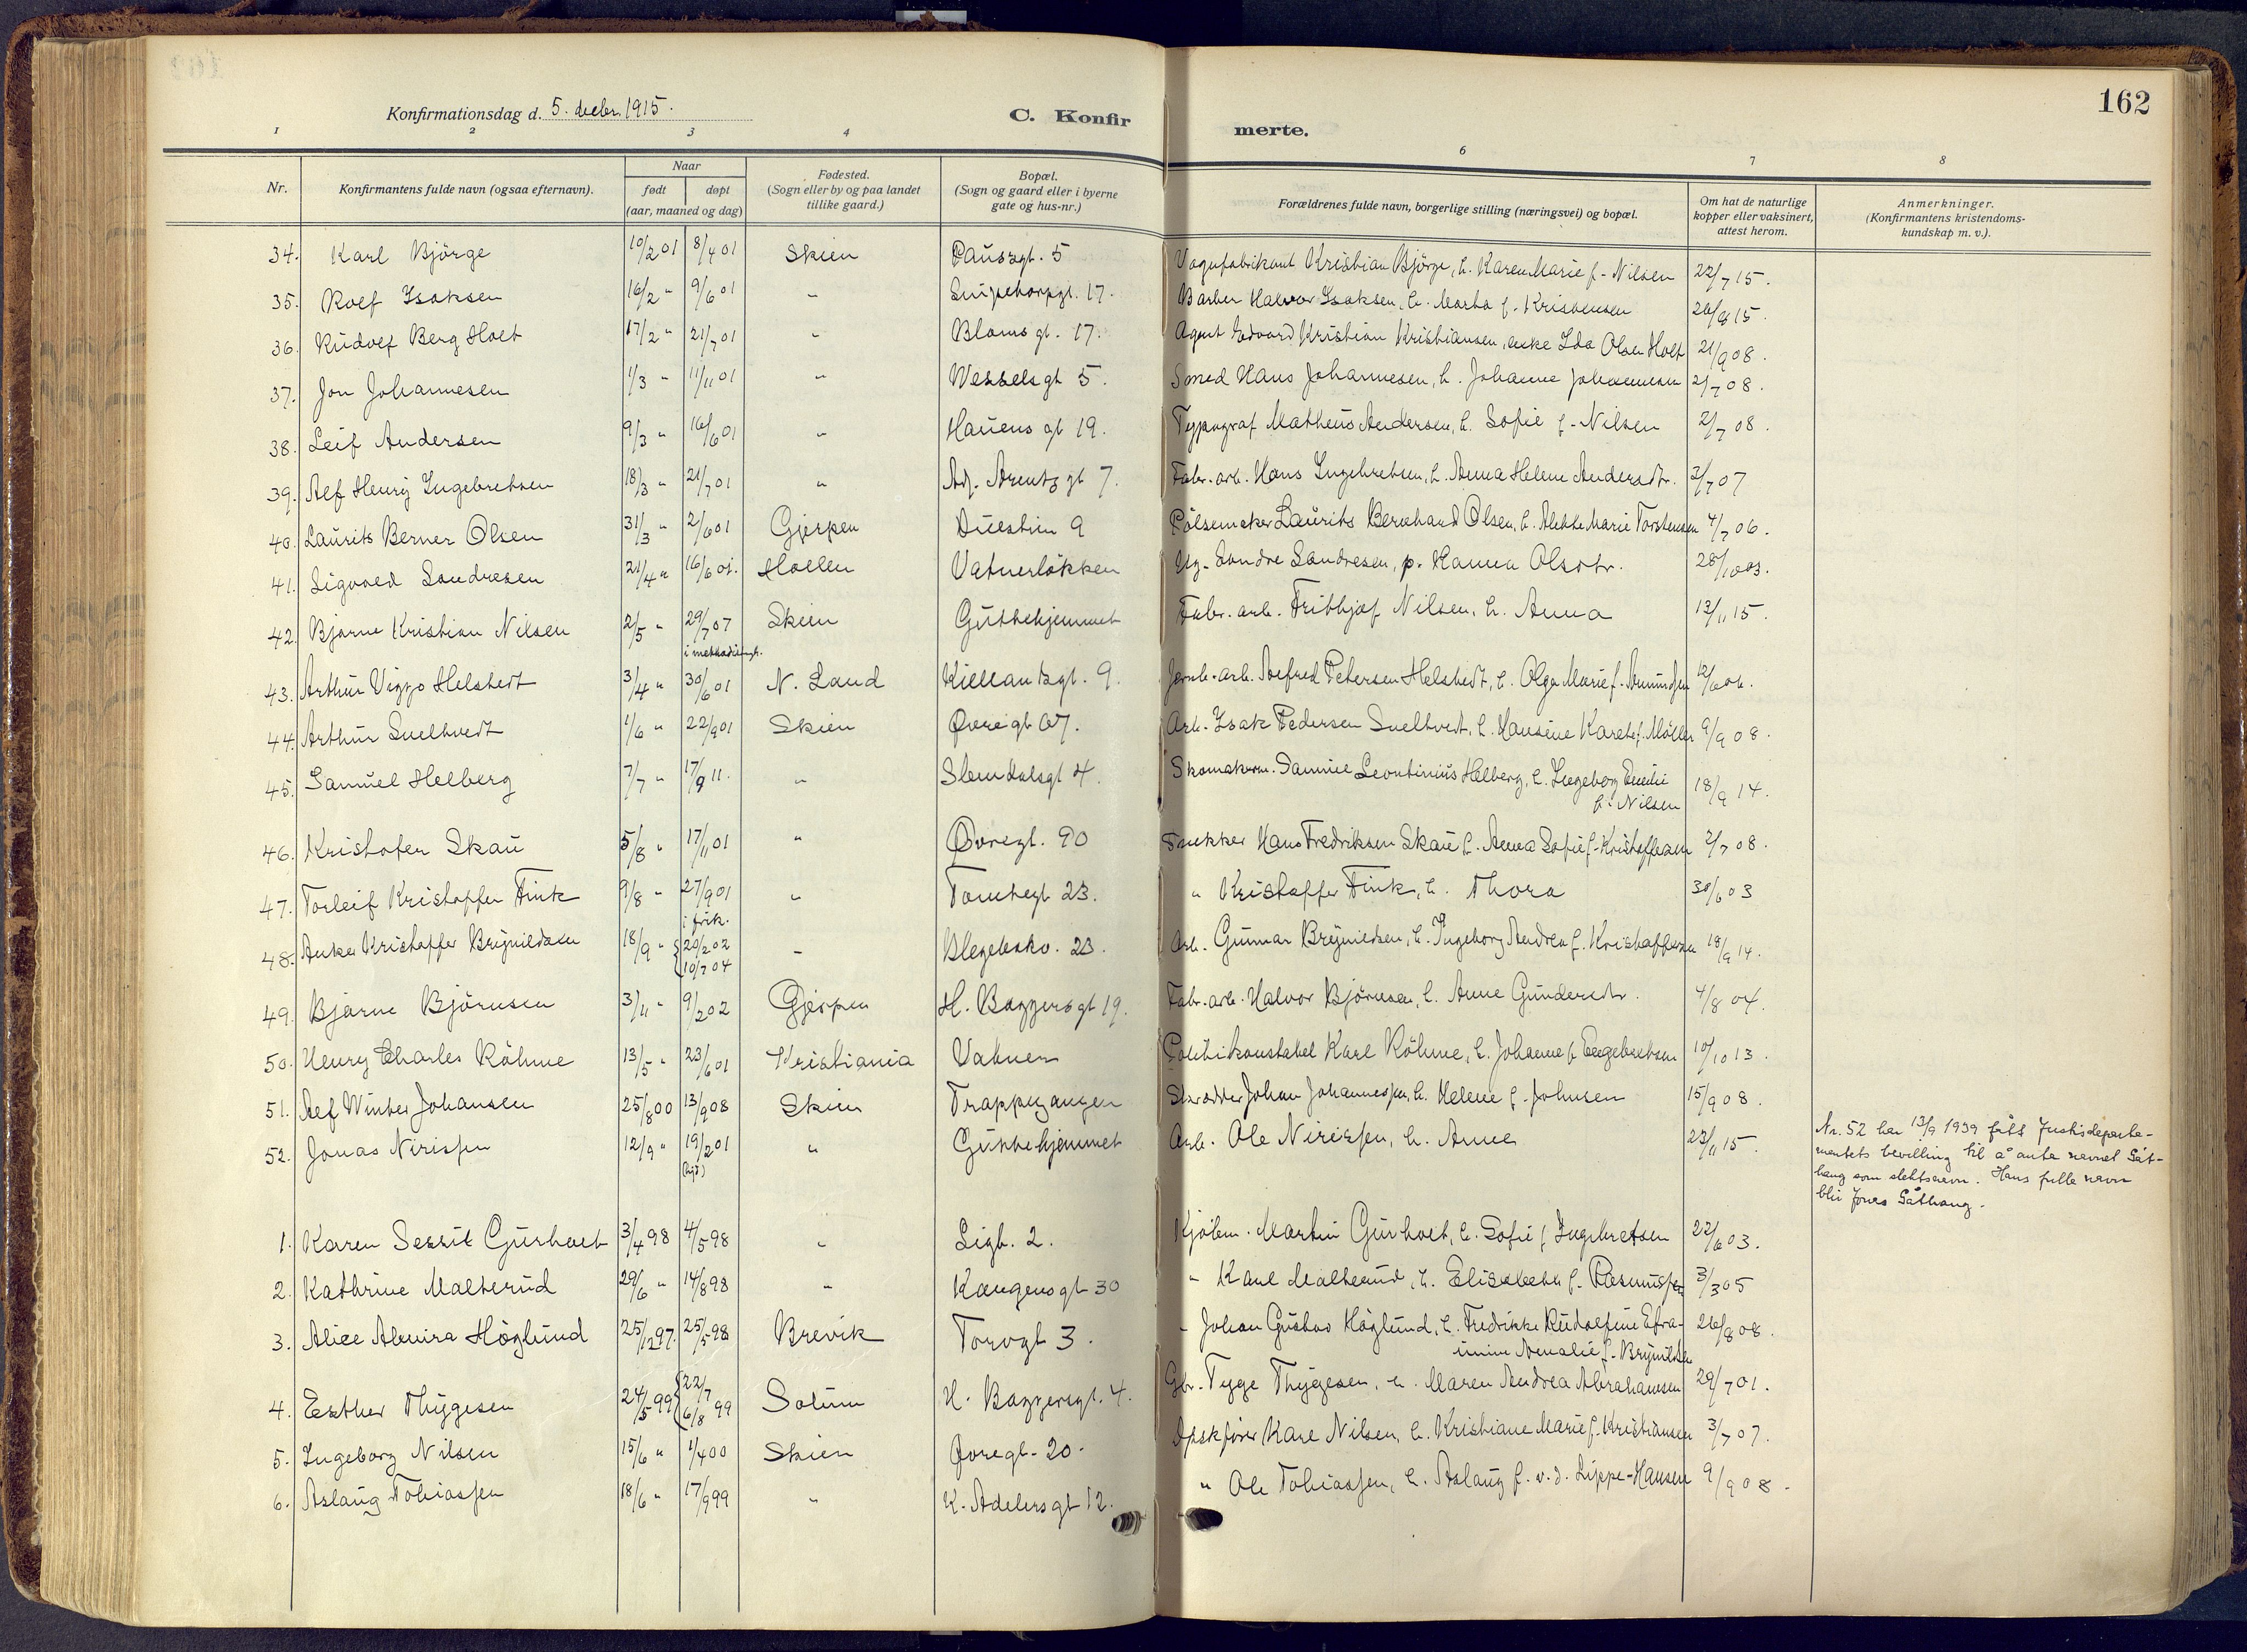 162
Konfirmationsdag d. 5. decbr. 1915.
C. Konfirmerte.
1 2 3 4 6 7 8
Nr. Konfirmantens fulde navn (ogsaa efternavn). Naar født døpt (aar, maaned og dag) Fødested. (Sogn eller by og paa landet tillike gaard.) Bopæl. (Sogn og gaard eller i byerne gate og hus-nr.) Forældrenes fulde navn, borgerlige stilling (næringsvei) og bopæl. Om hat de naturlige kopper eller vaksinert, attest herom. Anmerkninger. (Konfirmantens kristendomskundskap m. v.).
34. Karl Björge 10/2 01 8/4 01 Skien Pauszgt. 5 Vognfabrikant Kristian Björge, h. Karen Marie f. Nilsen 22/7 15.
35. Rolf Isaksen 16/2 " 9/6 01 " 17. Barber Halvor Isaksen, h. Marta f. Kristensen 26/8 15.
36. Rudolf Berg Holt 17/2 " 21/7 01 " Blomsgt. 17. Agent Edvard Kristian Kristiansen, enke Ida Olsen Holt 21/9 08.
37. Jon Johannesen 1/3 " 11/11 01 " Wesselsgt 5. Smed Hans Johannesen, h. Johanne Johannesen 2/7 08.
38. Leif Andersen 9/3 " 16/6 01 " Hauens gt 19. Typograf Matheus Andersen, h. Sofie f. Nilsen 2/7 08.
39. Alf Henry Ingebretsen 18/3 " 21/7 01 " Adj. Arentz gt 7. Fabr. arb. Hans Ingebretsen, h. Anna Helene Andersdtr. 3/7 07
40. Laurits Berner Olsen 31/3 " 2/6 01 Gjerpen Duestien 9 Pölsemaker Laurits Bernhard Olsen, h. Alette Marie Torstensen 4/7 06.
41. Sigvald Sondresen 21/4 " 16/6 01. Hollen Vatnerløkken Ug. Sondre Sondresen, p. Hanna Olsdtr. 28/10 03.
42. Bjarne Kristian Nilsen 2/5 " 29/7 07 Skien Guttehjemmet Fabr. arb. Frithjof Nilsen, h. Anna 13/11 15.
i metodistmgh.
43. Arthur Viggo Helstedt 3/4 " 30/6 01 N. Land Kiellandsgt. 9. Jernb. arb. Alfred Petersen Helstedt, h. Olga Marie f. Amundsen 12/6 06.
44. Arthur Snelltvedt 1/6 " 22/9 01 Skien Øvregt 67. Arb. Isak Pedersen Snelltvedt, h. Hansine Karete f. Möller 9/9 08.
45. Samuel Helberg 7/7 " 17/9 11. " Slemdalsgt 4. Skomakerm. Samuel Leontinius Helberg, h. Ingeborg Emilie 18/9 14.
f. Nilsen
46. Kristofer Skau 5/8 " 17/11 01 " Øvregt. 90 Trukker Hans Fredriksen Skau h. Anna Sofie f. Kristoffersen 2/7 08.
47. Torleif Kristoffer Fink 9/8 " 27/9 01 " Tomtegt 23. " Kristoffer Fink, h. Thora 30/6 03
i frik.
48. Anker Kristoffer Brynildsen 18/9 " 20/2 02 " Blegebakv. 23. Arb. Gunnar Brynildsen, h. Ingeborg Andrea f. Kristoffersen 18/9 14.
10/7 04
49. Bjarne Björnsen 3/11 " 9/2 02 Gjerpen H. Baggersgt 19. Fabr. arb. Halvor Björnsen, h. Anne Gundersdtr. 4/8 04.
50. Henry Charles Röhme 13/5 " 23/6 01 Kristiania Vatner Politikonstabel Karl Röhme, h. Johanne f. Engebretsen 10/10 13.
51. Alf Winter Johansen 25/8 00 13/9 08 Skien Trappegangen Skrædder Johan Johannesen, h. Helene f. Johnsen 15/9 08.
52. Jonas Nirisen 12/9 " 19/2 01 " Guttehjemmet Arb. Ole Nirisen, h. Anne 23/11 15.
Nr. 52 har 13/9 1939 fått Justisdeparte-
mentets bevilling til å anta navnet Såt-
haug som slektsnavn. Hans fulle navn
blir Jonas Såthaug.
1. Karen Sessil Gurholt 3/4 98 4/5 98 " Ligt. 2. Kjøbm. Martin Gurholt, h. Sofie f. Ingebretsen 22/6 03.
2. Kathrine Malterud 29/6 " 14/8 98 " Kongensgt 30 " Karl Malterud, h. Elisabeth f. Rasmussen 3/3 05
3. Alice Almira Höglund 25/12 97. 25/5 98 Brevik Torvgt 3. " Johan Gustav Höglund, h. Fredrikke Rudolfine Efra- 26/8 08.
f. Brynildsen
4. Esther Thygesen 24/5 99 22/7 6/8 99 Solum H. Baggersgt. 4. Gbr. Tygge Thygesen, h. Maren Andrea Abrahamsen 29/7 01.
5. Ingeborg Nilsen 15/6 " 1/4 00 Skien Øvregt. 20. Dpskfører Karl Nilsen, h. Kristiane Marie f. Kristiansen 3/7 07.
6. Aslaug Tobiassen 18/6 " 17/9 99 " K. Adelersgt 12. " Ole Tobiassen, h. Aslaug f. v. d. Lippe-Hansen 9/9 08.